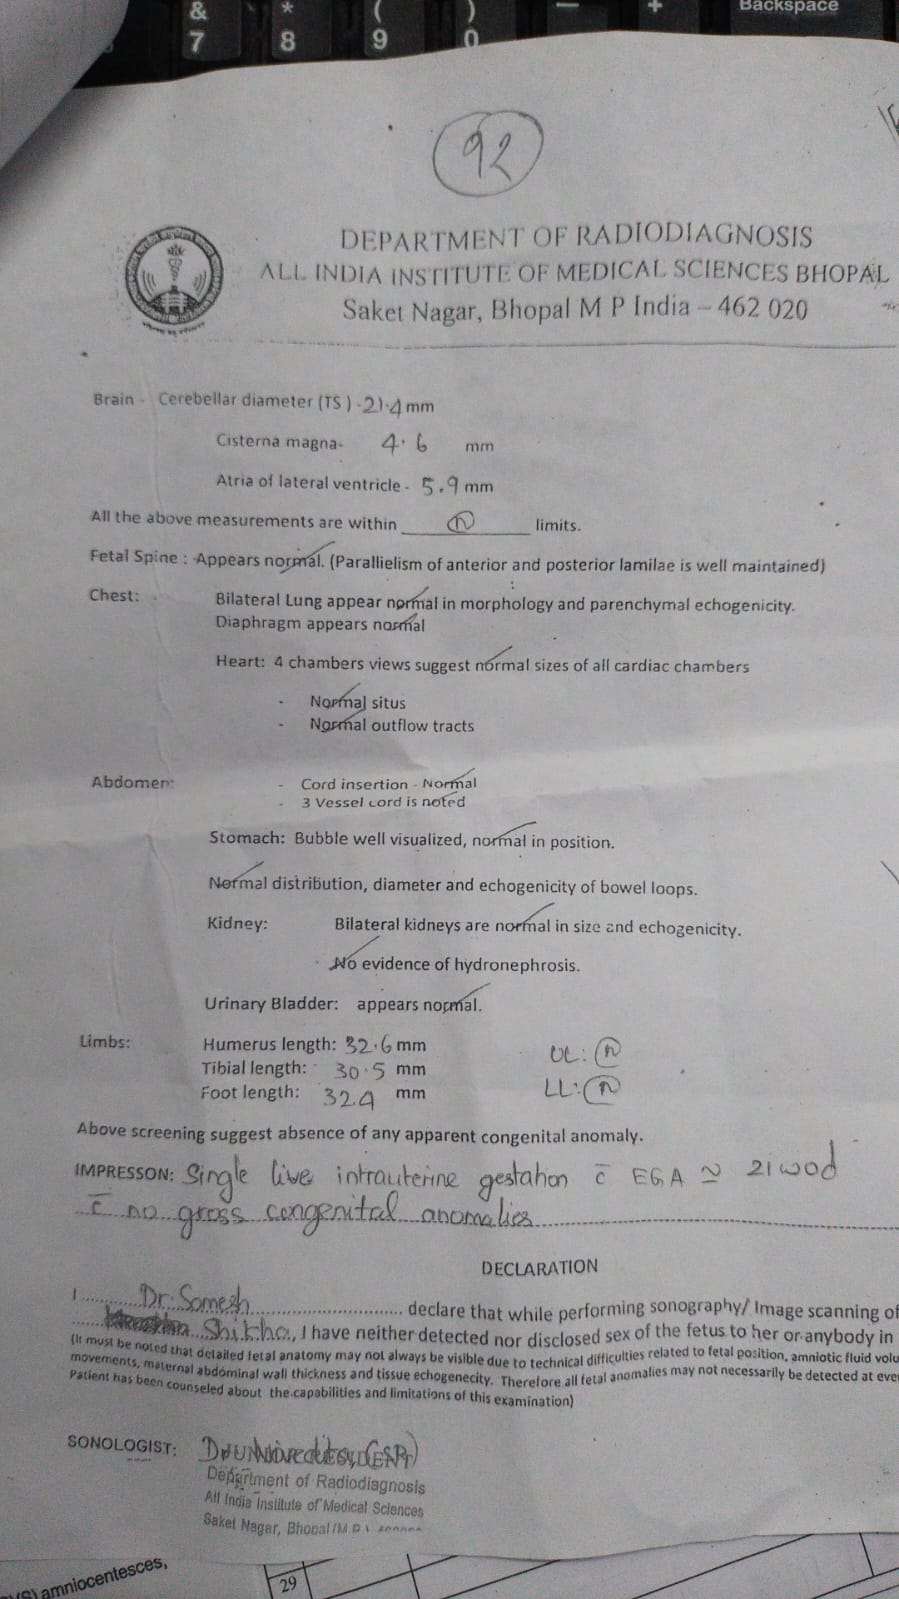 & * ( ) — + Backspace
7 8 9 0
92
DEPARTMENT OF RADIODIAGNOSIS
ALL INDIA INSTITUTE OF MEDICAL SCIENCES BHOPAL
Saket Nagar, Bhopal M P India – 462 020
Brain - Cerebellar diameter (TS) - 21.4 mm
Cisterna magna- 4.6 mm
Atria of lateral ventricle - 5.9 mm
All the above measurements are within (N) limits.
Fetal Spine : Appears normal. (Parallielism of anterior and posterior lamilae is well maintained)
Chest: Bilateral Lung appear normal in morphology and parenchymal echogenicity.
Diaphragm appears normal
Heart: 4 chambers views suggest normal sizes of all cardiac chambers
- Normal situs
- Normal outflow tracts
Abdomen: - Cord insertion - Normal
- 3 Vessel cord is noted
Stomach: Bubble well visualized, normal in position.
Normal distribution, diameter and echogenicity of bowel loops.
Kidney: Bilateral kidneys are normal in size and echogenicity.
No evidence of hydronephrosis.
Urinary Bladder: appears normal.
Limbs: Humerus length: 32.6 mm UL: (N)
Tibial length: 30.5 mm LL: (N)
Foot length: 32.4 mm
Above screening suggest absence of any apparent congenital anomaly.
IMPRESSON: Single live intrauterine gestation c̄ EGA ≃ 21w0d
c̄ no gross congenital anomalies
DECLARATION
I Dr. Somesh declare that while performing sonography/ Image scanning of
Shikha, I have neither detected nor disclosed sex of the fetus to her or anybody in
(It must be noted that detailed fetal anatomy may not always be visible due to technical difficulties related to fetal position, amniotic fluid volu
movements, maternal abdominal wall thickness and tissue echogenecity. Therefore all fetal anomalies may not necessarily be detected at eve
Patient has been counseled about the capabilities and limitations of this examination)
SONOLOGIST: Dr. Nivedita, (SR)
Department of Radiodiagnosis
All India Institute of Medical Sciences
Saket Nagar, Bhopal (M.P.)
amniocentesces,
29